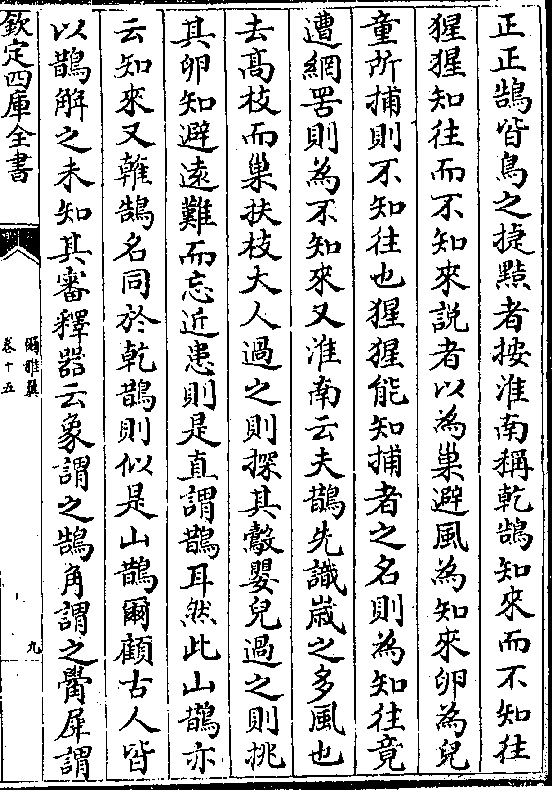 正正鵠皆鳥之捷黠者按淮南稱乾鵠知來而不知往
猩猩知往而不知來說者以為巢避風為知來卵為兒
童所捕則不知往也猩猩能知捕者之名則為知往竟
遭網罟則為不知來又淮南云夫鵲先識嵗之多風也
去髙枝而巢扶枝大人過之則探其鷇嬰兒過之則挑
其卵知避逺難而忘近患則是直謂鵲耳然此山鵲亦
云知來又雗鵠名同於乾鵲則似是山鵲爾顧古人皆
以鵲解之未知其審釋器云象謂之鵠角謂之觷犀謂
欽定四庫全書
爾雅翼
卷十五
九